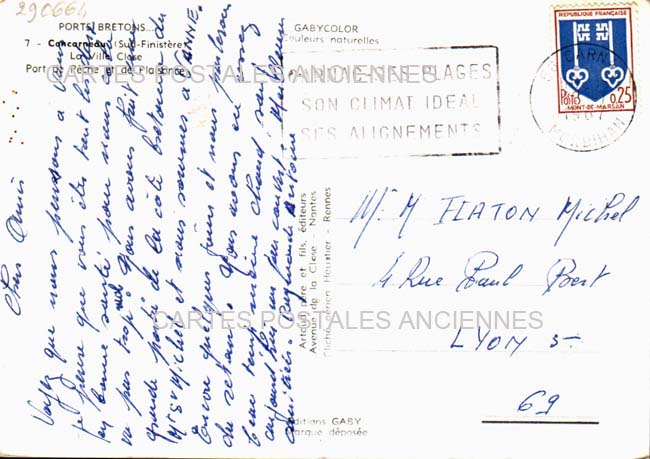 290664
PORTS BRETONS...
7 - Concarneau (Sud-Finistère)
La Ville Close
Port de Pêche et de Plaisance
GABYCOLOR
Couleurs naturelles
CARTES POSTALES ANCIENNES
PLAGES
SON CLIMAT IDEAL
SES ALIGNEMENTS
REPUBLIQUE FRANÇAISE
Postes 0,25
MONT-DE-MARSAN
CARN
1967
MORBIHAN
Chers Amis
Voyez que nous pensons à vous
je pense que vous êtes tout
en bonne santé pour nous
va pas trop mal nous avons fait
grande partie de la côté bretonne du
Mt St Michel et nous sommes à VANNE.
Encore quelques jours et nous
du retour. Nous avons eu assez
beau temps même chaud sauf
aujourd'hui un peu couvert. Meilleures
amitiés. Raymonde Antoine
Artaud père et fils, éditeurs
Avenue de la Close - Nantes
Cliché aérien Heurtier - Rennes
CARTES POSTALES ANCIENNES
Mr M FLATON Michel
4 Rue Paul Bert
LYON 3
69
Editions GABY
marque déposée